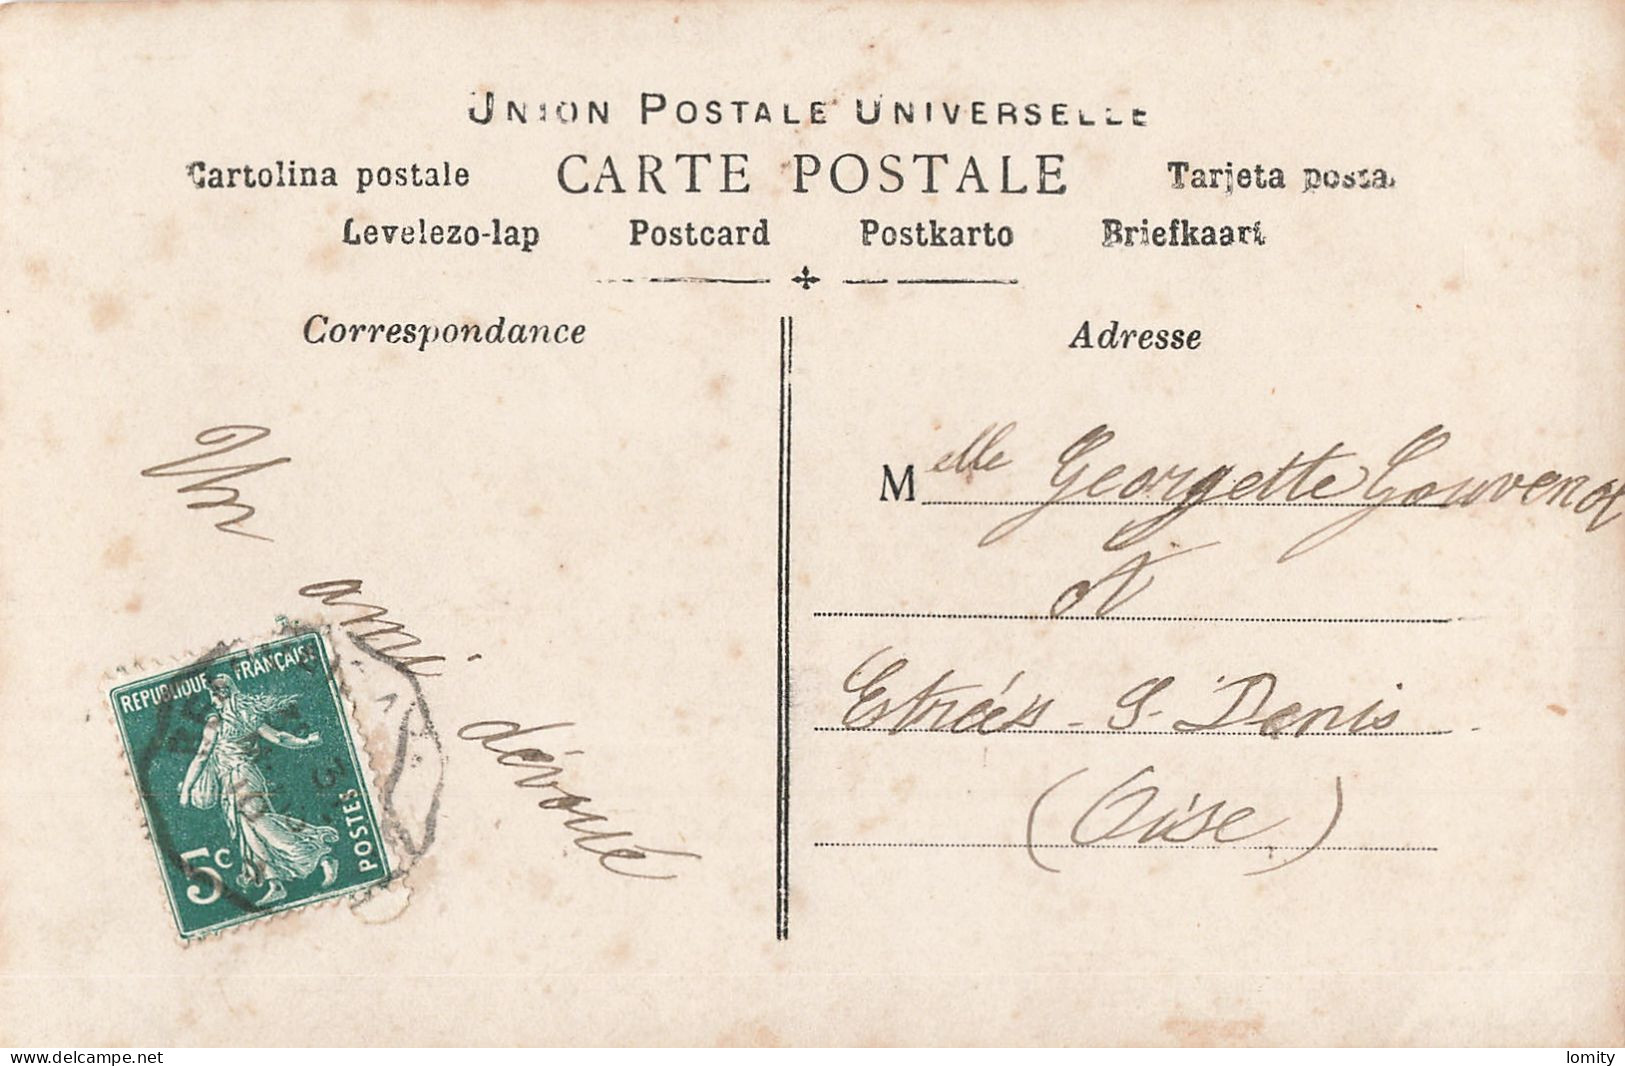 UNION POSTALE UNIVERSELLE
Cartolina postale CARTE POSTALE Tarjeta postal
Levelezo-lap Postcard Postkarto Briefkaart
Correspondance
Adresse
Un
ami
dévoué
REPUBLIQUE FRANÇAISE
5c
POSTES
Melle Georgette Gouvenot
A
Estrées-S-Denis
(Oise)
delcampe.net
lomity